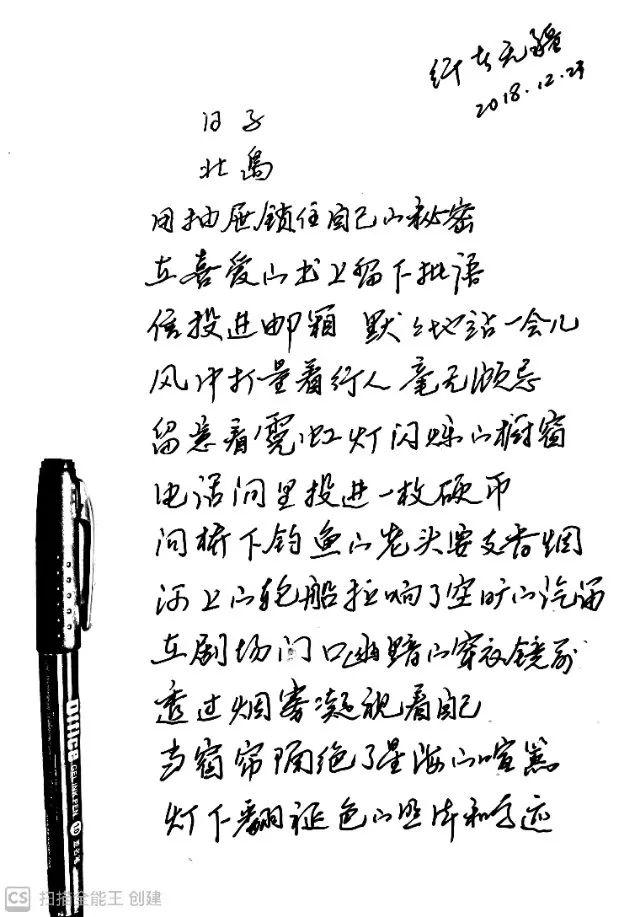 无疆
2018.12.23
日子
北岛
用抽屉锁住自己的秘密
在喜爱的书上留下批语
信投进邮箱 默々地站一会儿
风中打量着行人 毫无顾忌
留意着霓虹灯闪烁的橱窗
电话间里投进一枚硬币
问桥下钓鱼的老头要支香烟
河上的轮船拉响了空旷的汽笛
在剧场门口幽暗的穿衣镜前
透过烟雾凝视着自己
当窗帘隔绝了星海的喧嚣
灯下翻褪色的照片和字迹
Office GEL INK PEN
CS 扫描全能王 创建